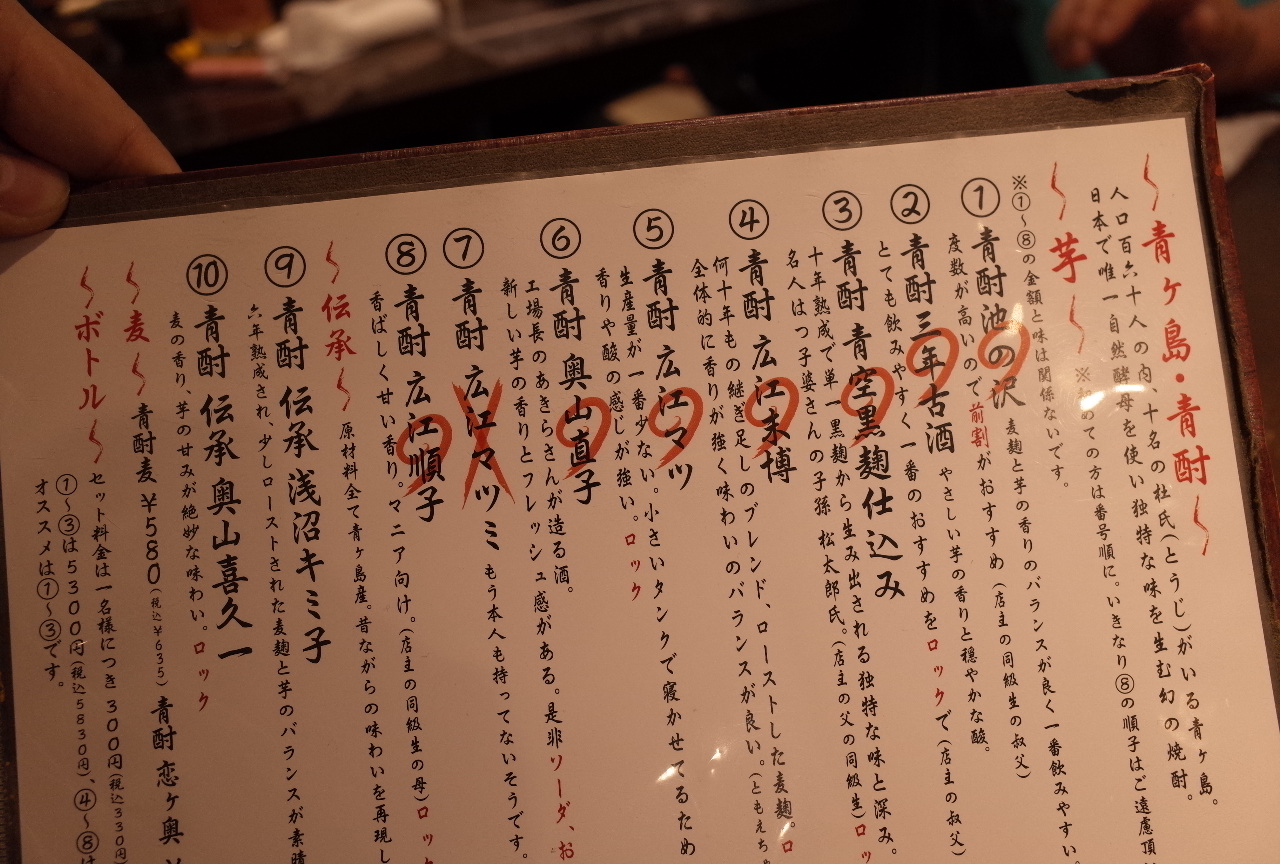 〜青ヶ島・青酎〜
人口百六十人の内、十名の杜氏(とうじ)がいる青ヶ島。
日本で唯一自然酵母を使い独特な味を生む幻の焼酎。
〜芋〜
※初めての方は番号順に。いきなり⑧の順子はご遠慮頂
※①〜⑧の金額と味は関係ないです。
① 青酎 池の沢 麦麹と芋の香りのバランスが良く一番飲みやすい
度数が高いので前割がおすすめ(店主の同級生の叔父)
② 青酎 三年古酒 やさしい芋の香りと穏やかな酸。
とても飲みやすく一番のおすすめをロックで(店主の叔父)
③ 青酎 青空黒麹仕込み
十年熟成で単一黒麹から生み出される独特な味と深み。
名人はつ子婆さんの子孫 松太郎氏。(店主の父の同級生)ロッ
④ 青酎 広江末博
何十年もの継ぎ足しのブレンド、ローストした麦麹。ロ
全体的に香りが強く味わいのバランスが良い。(ともえち。
⑤ 青酎 広江マツ
生産量が一番少ない。小さいタンクで寝かせてるため
香りや酸の感じが強い。ロック
⑥ 青酎 奥山直子
工場長のあきらさんが造る酒。
新しい芋の香りとフレッシュ感がある。是非ソーダ、お
⑦ 青酎 広江マツミ もう本人も持ってないそうです。
⑧ 青酎 広江順子
香ばしく甘い香り。マニア向け。(店主の同級生の母)ロック
〜伝承〜 原材料全て青ヶ島産。昔ながらの味わいを再現し
⑨ 青酎 伝承 浅沼キミ子
六年熟成され、少しローストされた麦麹と芋のバランスが素晴
⑩ 青酎 伝承 奥山喜久一
麦の香り、芋の甘みが絶妙な味わい。ロック
〜麦〜 青酎麦 ¥580(税込¥635) 青酎 恋ヶ奥
〜ボトル〜 セット料金は一名様につき300円(税込330円)
①〜③は5300円(税込5830円)、④〜⑧は
オススメは①〜③です。
9
9
9
9
9
9
X
9